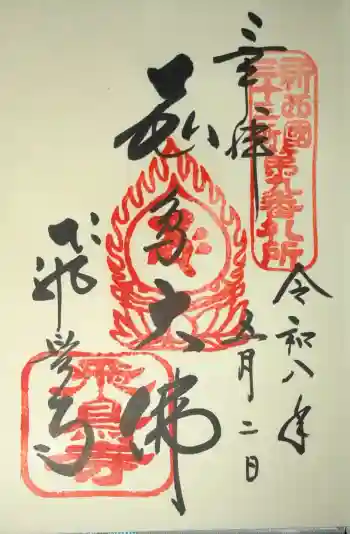 奉拝
新西国
三十三所第九番札所
令和八年
五月二日
飛鳥大佛
飛鳥寺
飛鳥寺